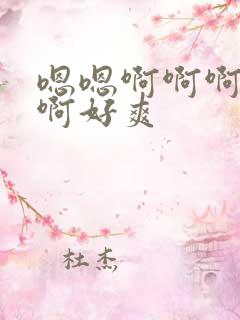 嗯嗯啊啊啊
啊好爽
杜杰